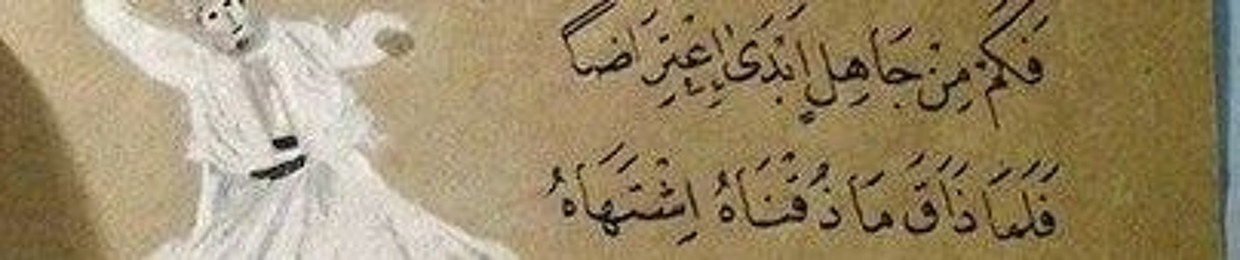 فَكَمْ مِنْ جَاهِلٍ اَبْدَىٰ اِعْتِرَاضاً
فَلَمَّا ذَاقَ مَا ذُقْنَاهُ اِشْتَهَاهُ